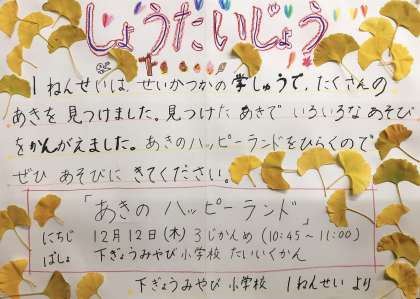 しょうたいじょう
1ねんせいは、せいかつかの学しゅうで、たくさんの
あきを見つけました。見つけた あきで いろいろな あそび
をかんがえました。あきのハッピーランドをひらくので
ぜひ あそびに きてください。
「あきの ハッピーランド」
にちじ 12月12日(木) 3じかんめ (10:45～11:00)
ばしょ 下ぎょうみやび小学校 たいいくかん
下ぎょうみやび小学校 1ねんせい より